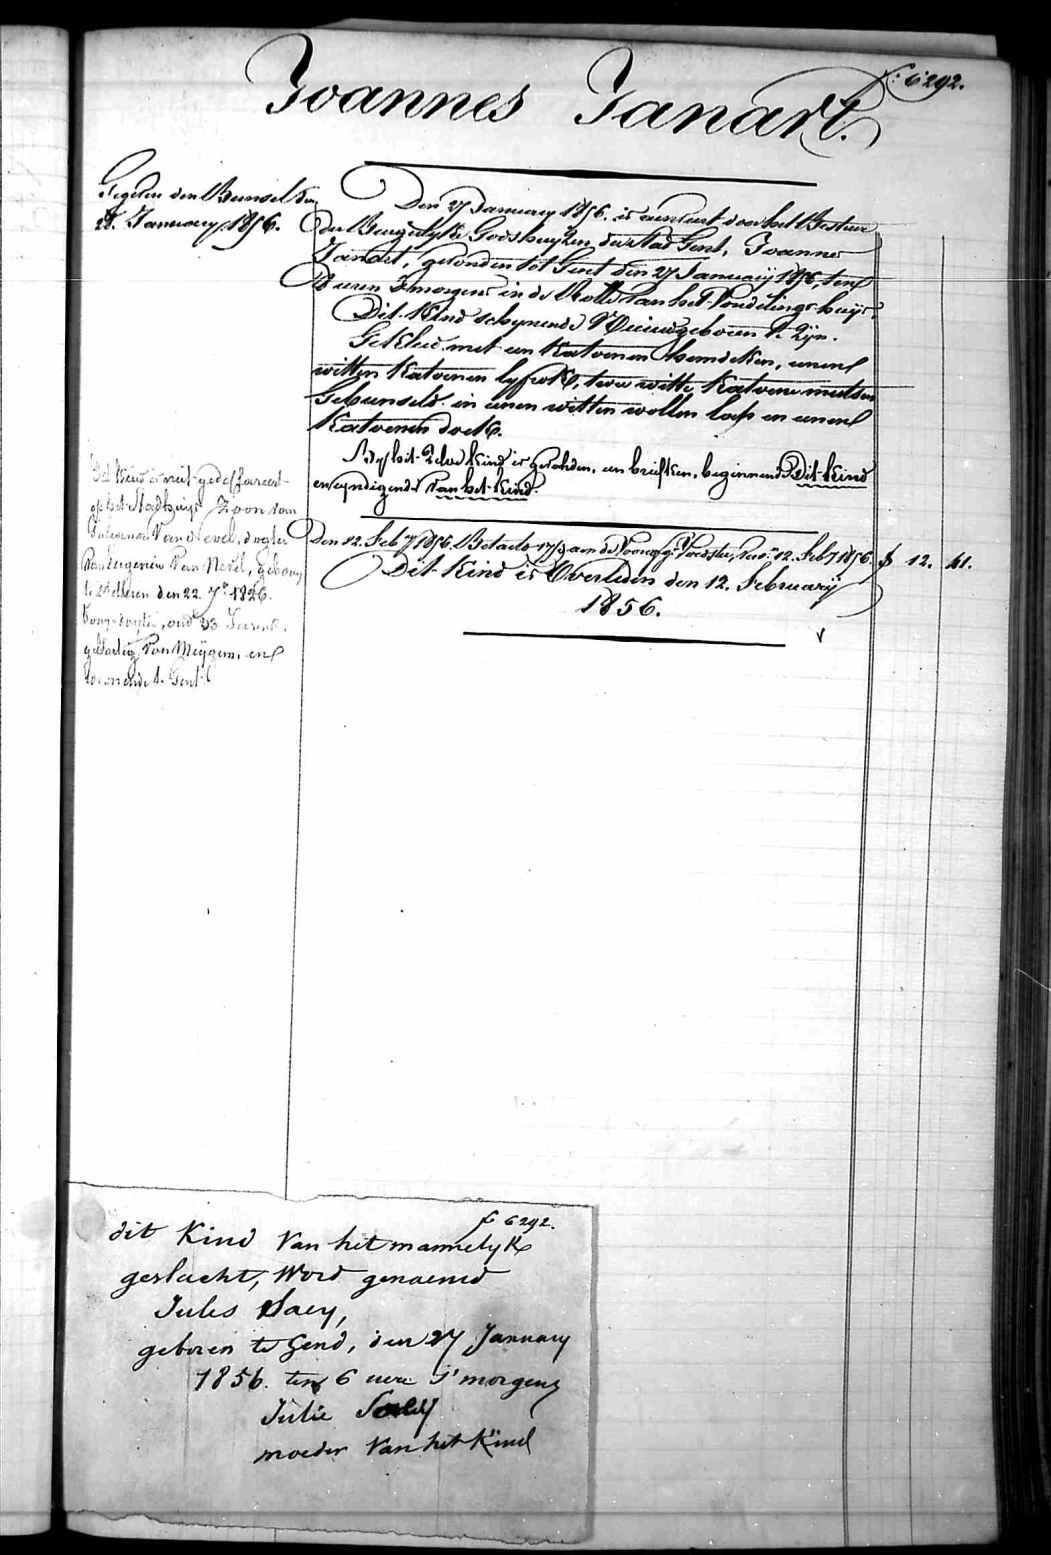 f° 6292.
Joannes Janart.
Gegeven den Bunsel den
28. January 1856.
Den 27 January 1856. is aenveert door het Bestuur
der Burgerlyke Godshuyzen der stad Gent, Joannes
Janart, gevonden tot Gent den 27 January 1856, ten
8 uren 's morgens in de Rolle van het Vondelings-huys,
Dit Kind schynende Nieuwgeboren te zyn.
Gekleed met een Katoenen hemdeken, eenen
witten Katoenen lyfrok, twee witte Katoene mutsen
Gebunseld in eenen witten wollen lap en eenen
Katoenen doek.
By dit zelve kind is gevonden, een briefken, beginnende Dit kind
en eyndigende van het kind.
Dit Kind is
op het Stadhuys Zoon van
Van Nevel, dogter
van Eugenien Van Nevel, geboren
den 22. 7bre 1826.
oud 33 Jaren,
Van Meygem, en
woonende te Gent
Den 12. Feb 1856. Betaeld aen de Voorzg. Voedster, 12. Feb 1856. f 12. 41.
Dit Kind is Overleden den 12. February
1856.
f 6292.
dit Kind van het mannelyk
geslacht, word genaemd
Jules Saey,
geboren te Gend, den 27 January
1856. ten 6 uere s'morgens
Julie
moeder van het Kind